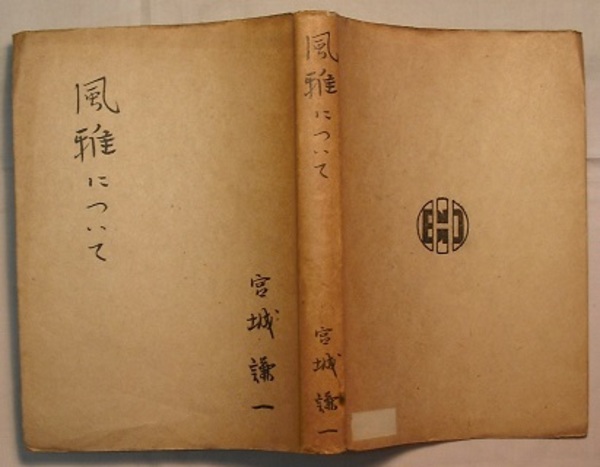 風雅について
宮城謙一
風雅について
宮城謙一